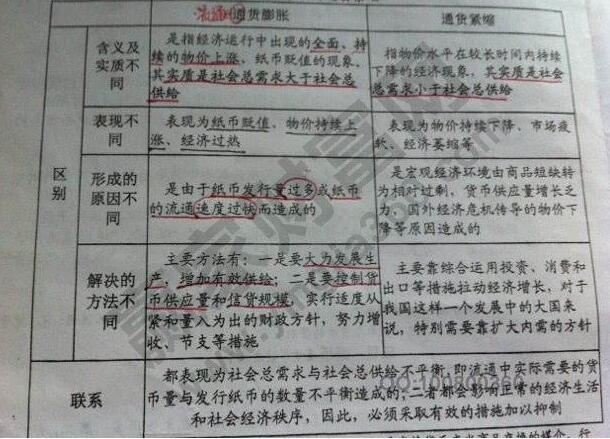 通货膨胀
通货紧缩
区别
含义及
实质不
同
是指经济运行中出现的全面、持
续的物价上涨、纸币贬值的现象,
其实质是社会总需求大于社会总
供给
指物价水平在较长时间内持续
下降的经济现象,其实质是社会
总需求小于社会总供给
表现不
同
表现为纸币贬值、物价持续上
涨、经济过热
表现为物价持续下降、市场疲
软、经济萎缩等
形成的
原因不
同
是由于纸币发行量过多或纸币
的流通速度过快而造成的
是宏观经济环境由商品短缺转
为相对过剩,货币供应量增长乏
力、国外经济危机传导的物价下
降等原因造成的
解决的
方法不
同
主要方法有:一是要大力发展生
产,增加有效供给;二是要控制货
币供应量和信贷规模,实行适度从
紧和量入为出的财政方针,努力增
收、节支等措施
主要靠综合运用投资、消费和
出口等措施拉动经济增长,对于
我国这样一个发展中的大国来
说,特别需要靠扩大内需的方针
联系
都表现为社会总需求与社会总供给不平衡,即流通中实际需要的货
币量与发行纸币的数量不平衡造成的;二者都会影响正常的经济生活
和社会经济秩序,因此,必须采取有效的措施加以抑制